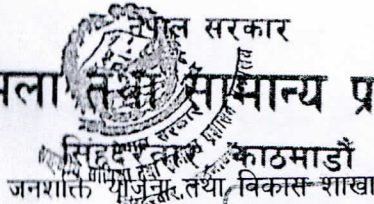 नेपाल सरकार
मला तथा सामान्य प्र
सिंहदरबार, काठमाडौं
जनशक्ति योजना तथा विकास शाखा